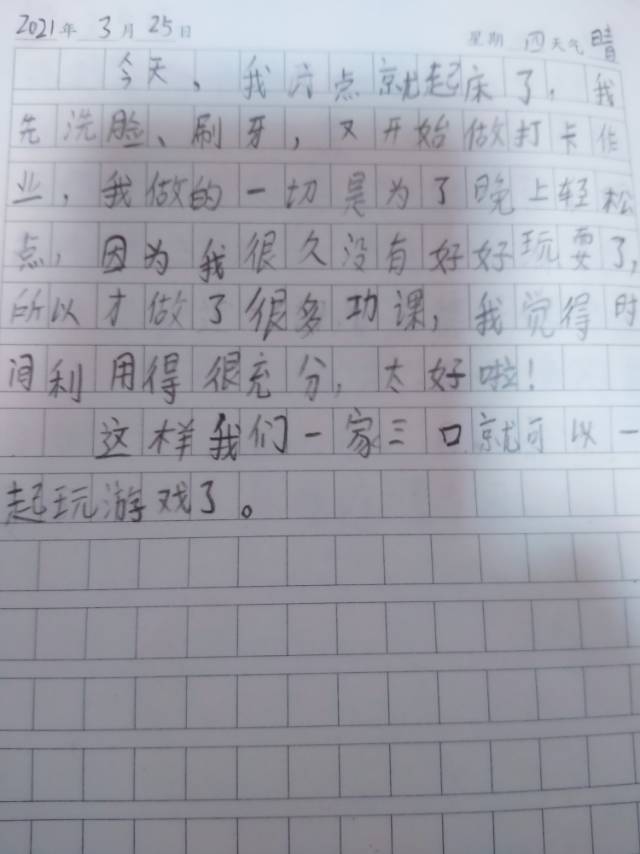 2021年 3月25日 星期 四 天气 晴
今天，我六点就起床了，我
先洗脸、刷牙，又开始做打卡作
业，我做的一切是为了晚上轻松
点，因为我很久没有好好玩耍了，
所以才做了很多功课，我觉得时
间利用得很充分，太好啦！
这样我们一家三口就可以一
起玩游戏了。